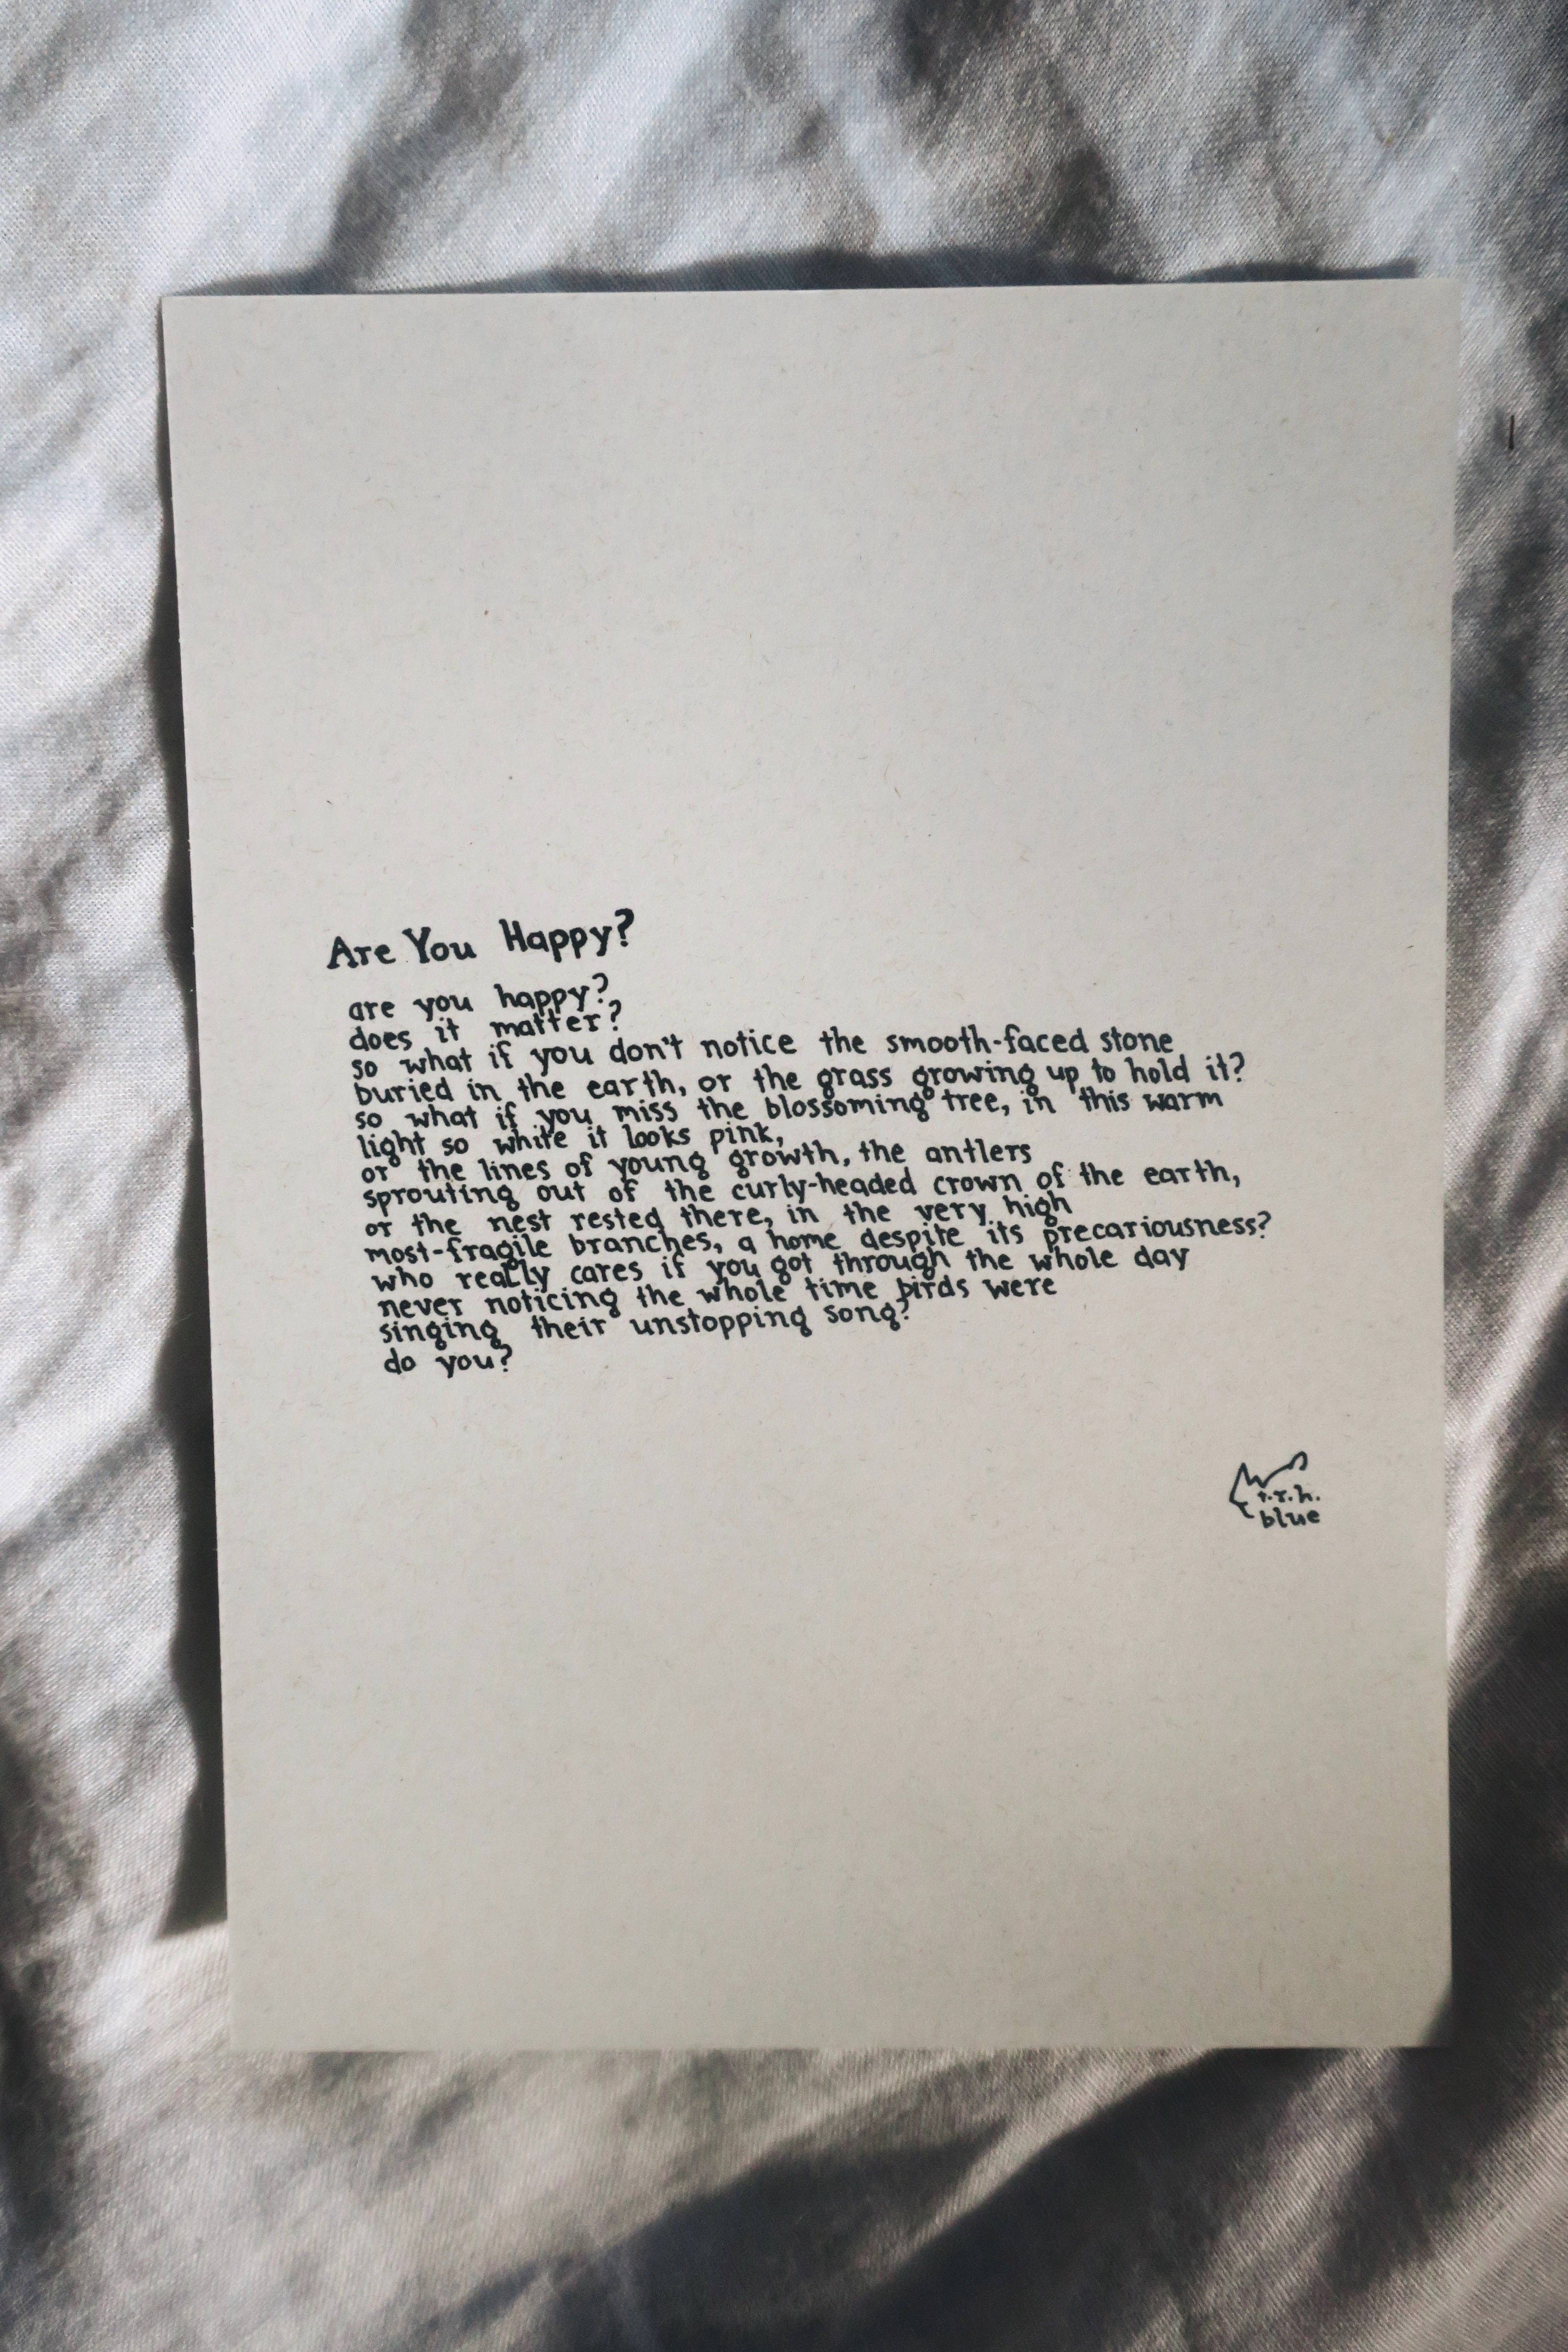 Are You Happy?
are you happy?
does it matter?
so what if you don't notice the smooth-faced stone
buried in the earth, or the grass growing up to hold it?
so what if you miss the blossoming tree, in this warm
light so white it looks pink,
or the lines of young growth, the antlers
sprouting out of the curly-headed crown of the earth,
or the nest rested there, in the very high
most-fragile branches, a home despite its precariousness?
who really cares if you got through the whole day
never noticing the whole time birds were
singing their unstopping song?
do you?
t.r.h.
blue